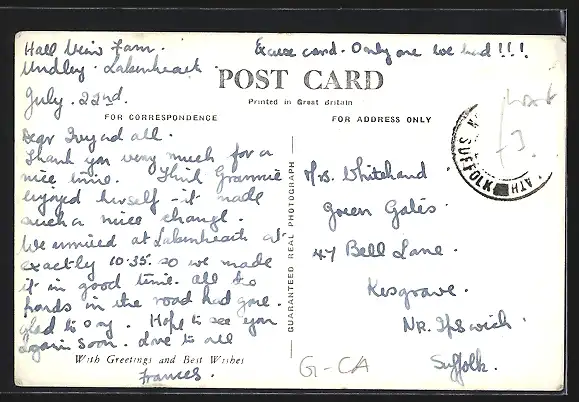 Hall View Farm.
Undley. Lakenheath.
July. 22nd.
Excuse card. Only one we had!!!
POST CARD
Printed in Great Britain
FOR CORRESPONDENCE
FOR ADDRESS ONLY
Dear Ivy and all.
Thank you very much for a
nice time. Think Grannie
enjoyed herself - it made
such a nice change.
We arrived at Lakenheath at
exactly 10.35. so we made
it in good time. all the
hards in the road had gone.
glad to say. Hope to see you
again soon. Love to all
With Greetings and Best Wishes
Frances.
GUARANTEED REAL PHOTOGRAPH
Mrs. Whitehand
Green Gates
47 Bell Lane.
Kesgrave.
NR. IPSwich.
Suffolk.
SUFFOLK
G-CA